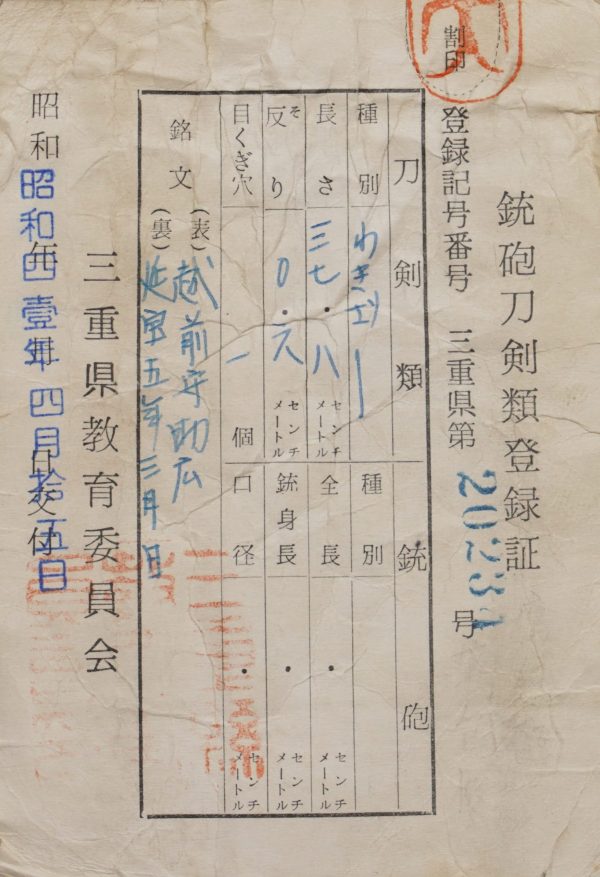 銃砲刀剣類登録証
割印
登録記号番号 三重県第 号
刀剣類
種別 わきざし
長さ 三七・八 センチメートル
反り 0・六 センチメートル
そ
目くぎ穴 一 個
銘文
(表) 越前守助広
(裏) 延宝五年三月日
銃砲
種別
全長 ・ センチメートル
銃身長 ・ センチメートル
口径 ・ センチメートル
三重県教育委員会
昭和 年 月 日交付
昭和四壹年四月拾五日